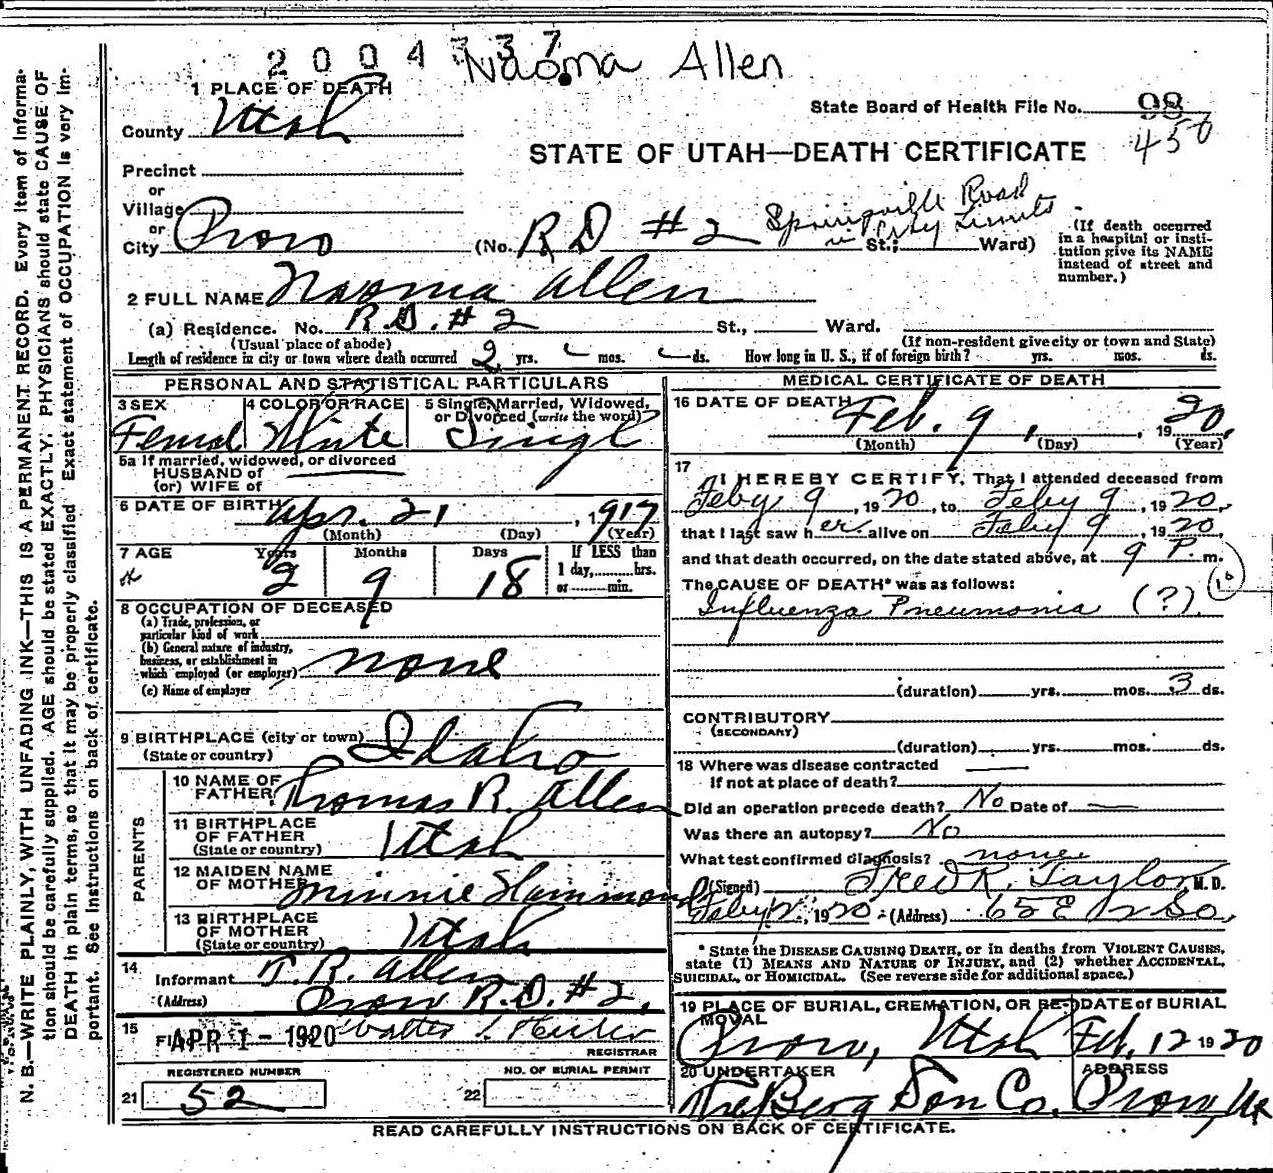 2004737 Naoma Allen
1 PLACE OF DEATH
State Board of Health File No. 98
County Utah
450
STATE OF UTAH—DEATH CERTIFICATE
Precinct
or
Village
or
City Provo (No. R D #2 Springville Road in City Limits St.; Ward)
(If death occurred in a hospital or institution give its NAME instead of street and number.)
2 FULL NAME Naoma Allen
(a) Residence. No. R.D. #2 St., Ward.
(Usual place of abode) (If non-resident give city or town and State)
Length of residence in city or town where death occurred 2 yrs. mos. ds. How long in U. S., if of foreign birth? yrs. mos. ds.
PERSONAL AND STATISTICAL PARTICULARS
3 SEX 4 COLOR OR RACE 5 Single, Married, Widowed, or Divorced (write the word)
Femal White Singl
5a If married, widowed, or divorced
HUSBAND of
(or) WIFE of
6 DATE OF BIRTH Apr. 21, 1917
(Month) (Day) (Year)
7 AGE Years Months Days If LESS than
2 9 18 1 day, hrs.
or min.
8 OCCUPATION OF DECEASED
(a) Trade, profession, or
particular kind of work
(b) General nature of industry,
business, or establishment in
which employed (or employer) none
(c) Name of employer
9 BIRTHPLACE (city or town) Idaho
(State or country)
PARENTS
10 NAME OF FATHER Thomas R. Allen
11 BIRTHPLACE OF FATHER Utah
(State or country)
12 MAIDEN NAME OF MOTHER Minnie Hammond
13 BIRTHPLACE OF MOTHER Utah
(State or country)
14 Informant T. R. Allen
(Address) Provo R.D. #2,
15 APR 1 - 1920 Walter
REGISTRAR
REGISTERED NUMBER NO. OF BURIAL PERMIT
21 52 22
MEDICAL CERTIFICATE OF DEATH
16 DATE OF DEATH Feb. 9, 1920,
(Month) (Day) (Year)
17 I HEREBY CERTIFY, That I attended deceased from
Feby 9, 1920, to Feby 9, 1920,
that I last saw her alive on Feby 9, 1920,
and that death occurred, on the date stated above, at 9 P. m.
The CAUSE OF DEATH* was as follows:
Influenza Pneumonia (?)
10
(duration) yrs. mos. 3 ds.
CONTRIBUTORY
(SECONDARY)
(duration) yrs. mos. ds.
18 Where was disease contracted
if not at place of death?
Did an operation precede death? No Date of
Was there an autopsy? No
What test confirmed diagnosis? none
(Signed) Fred R. Taylor, M. D.
Feby 1920 (Address) 65 E So.
* State the DISEASE CAUSING DEATH, or in deaths from VIOLENT CAUSES,
state (1) MEANS AND NATURE OF INJURY, and (2) whether ACCIDENTAL,
SUICIDAL, or HOMICIDAL. (See reverse side for additional space.)
19 PLACE OF BURIAL, CREMATION, OR REMOVAL DATE of BURIAL
Provo, Utah Feb. 12 1920
20 UNDERTAKER ADDRESS
The Berg Son Co. Provo, Ut
READ CAREFULLY INSTRUCTIONS ON BACK OF CERTIFICATE.
N. B.—WRITE PLAINLY, WITH UNFADING INK—THIS IS A PERMANENT RECORD. Every item of information
should be carefully supplied. AGE should be stated EXACTLY. PHYSICIANS should state CAUSE OF
DEATH in plain terms, so that it may be properly classified. Exact statement of OCCUPATION is very important.
See instructions on back of certificate.